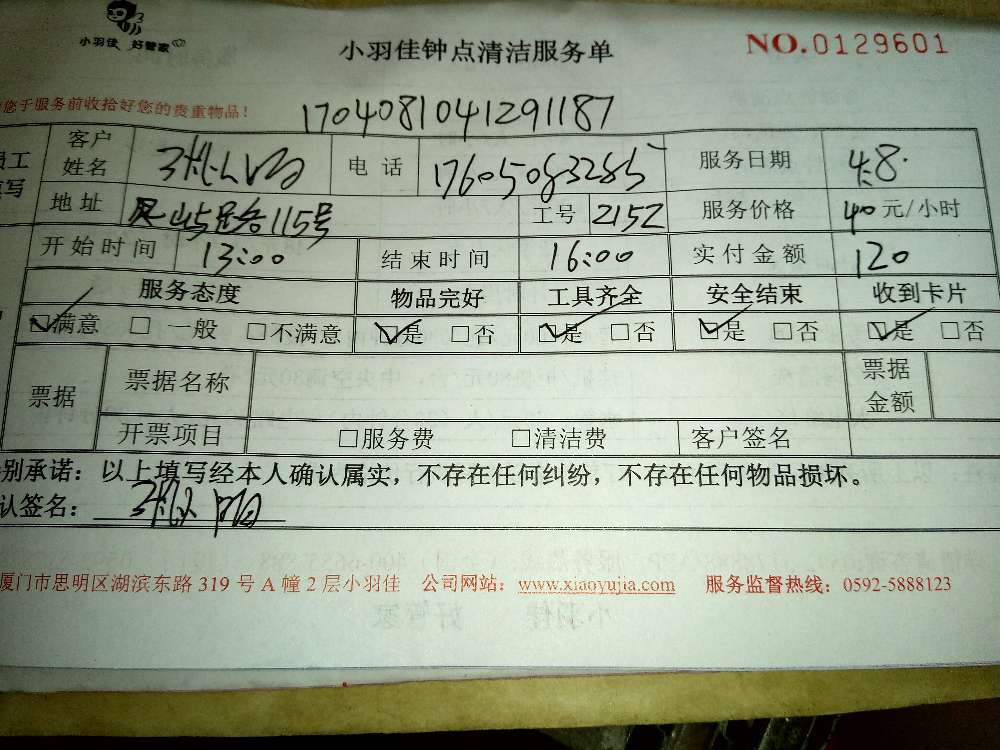 小羽佳 好管家
小羽佳钟点清洁服务单
NO.0129601
您于服务前收拾好您的贵重物品！
1704081041291187
客户姓名 电话 17605083285 服务日期 4.8.
地址 115号 工号 2152 服务价格 40元/小时
开始时间 13:00 结束时间 16:00 实付金额 120
服务态度 物品完好 工具齐全 安全结束 收到卡片
☑满意 □一般 □不满意 ☑是 □否 ☑是 □否 ☑是 □否 ☑是 □否
票据 票据名称 票据金额
开票项目 □服务费 □清洁费 客户签名
别承诺：以上填写经本人确认属实，不存在任何纠纷，不存在任何物品损坏。
认签名：
厦门市思明区湖滨东路 319 号 A 幢 2 层小羽佳 公司网站：www.xiaoyujia.com 服务监督热线：0592-5888123